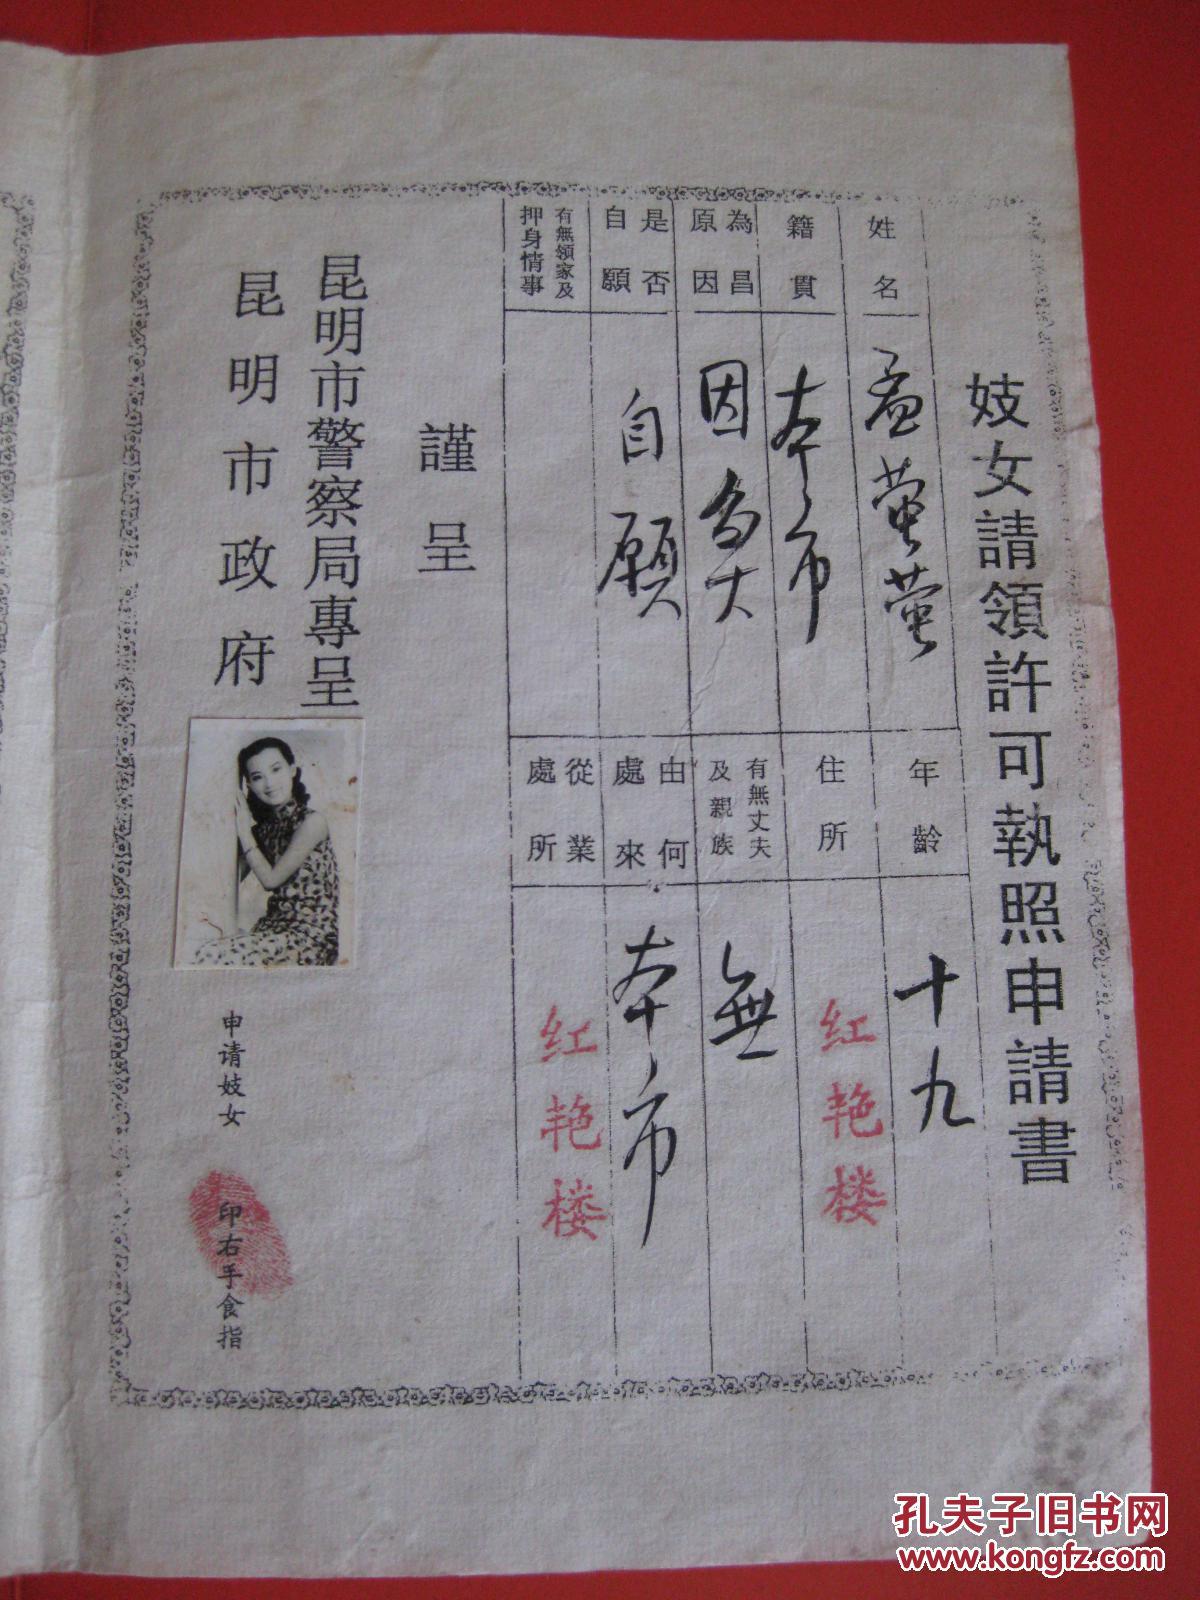 妓女請領許可執照申請書
姓名
孟萤萤
年齡
十九
籍貫
本市
住所
红艳楼
為昌原因
因
有無丈夫及親族
無
是否自願
自願
由何處來
本市
有無領家及押身情事
從業處所
红艳楼
謹呈
昆明市警察局專呈
昆明市政府
申请妓女
印右手食指
孔夫子旧书网
www.kongfz.com